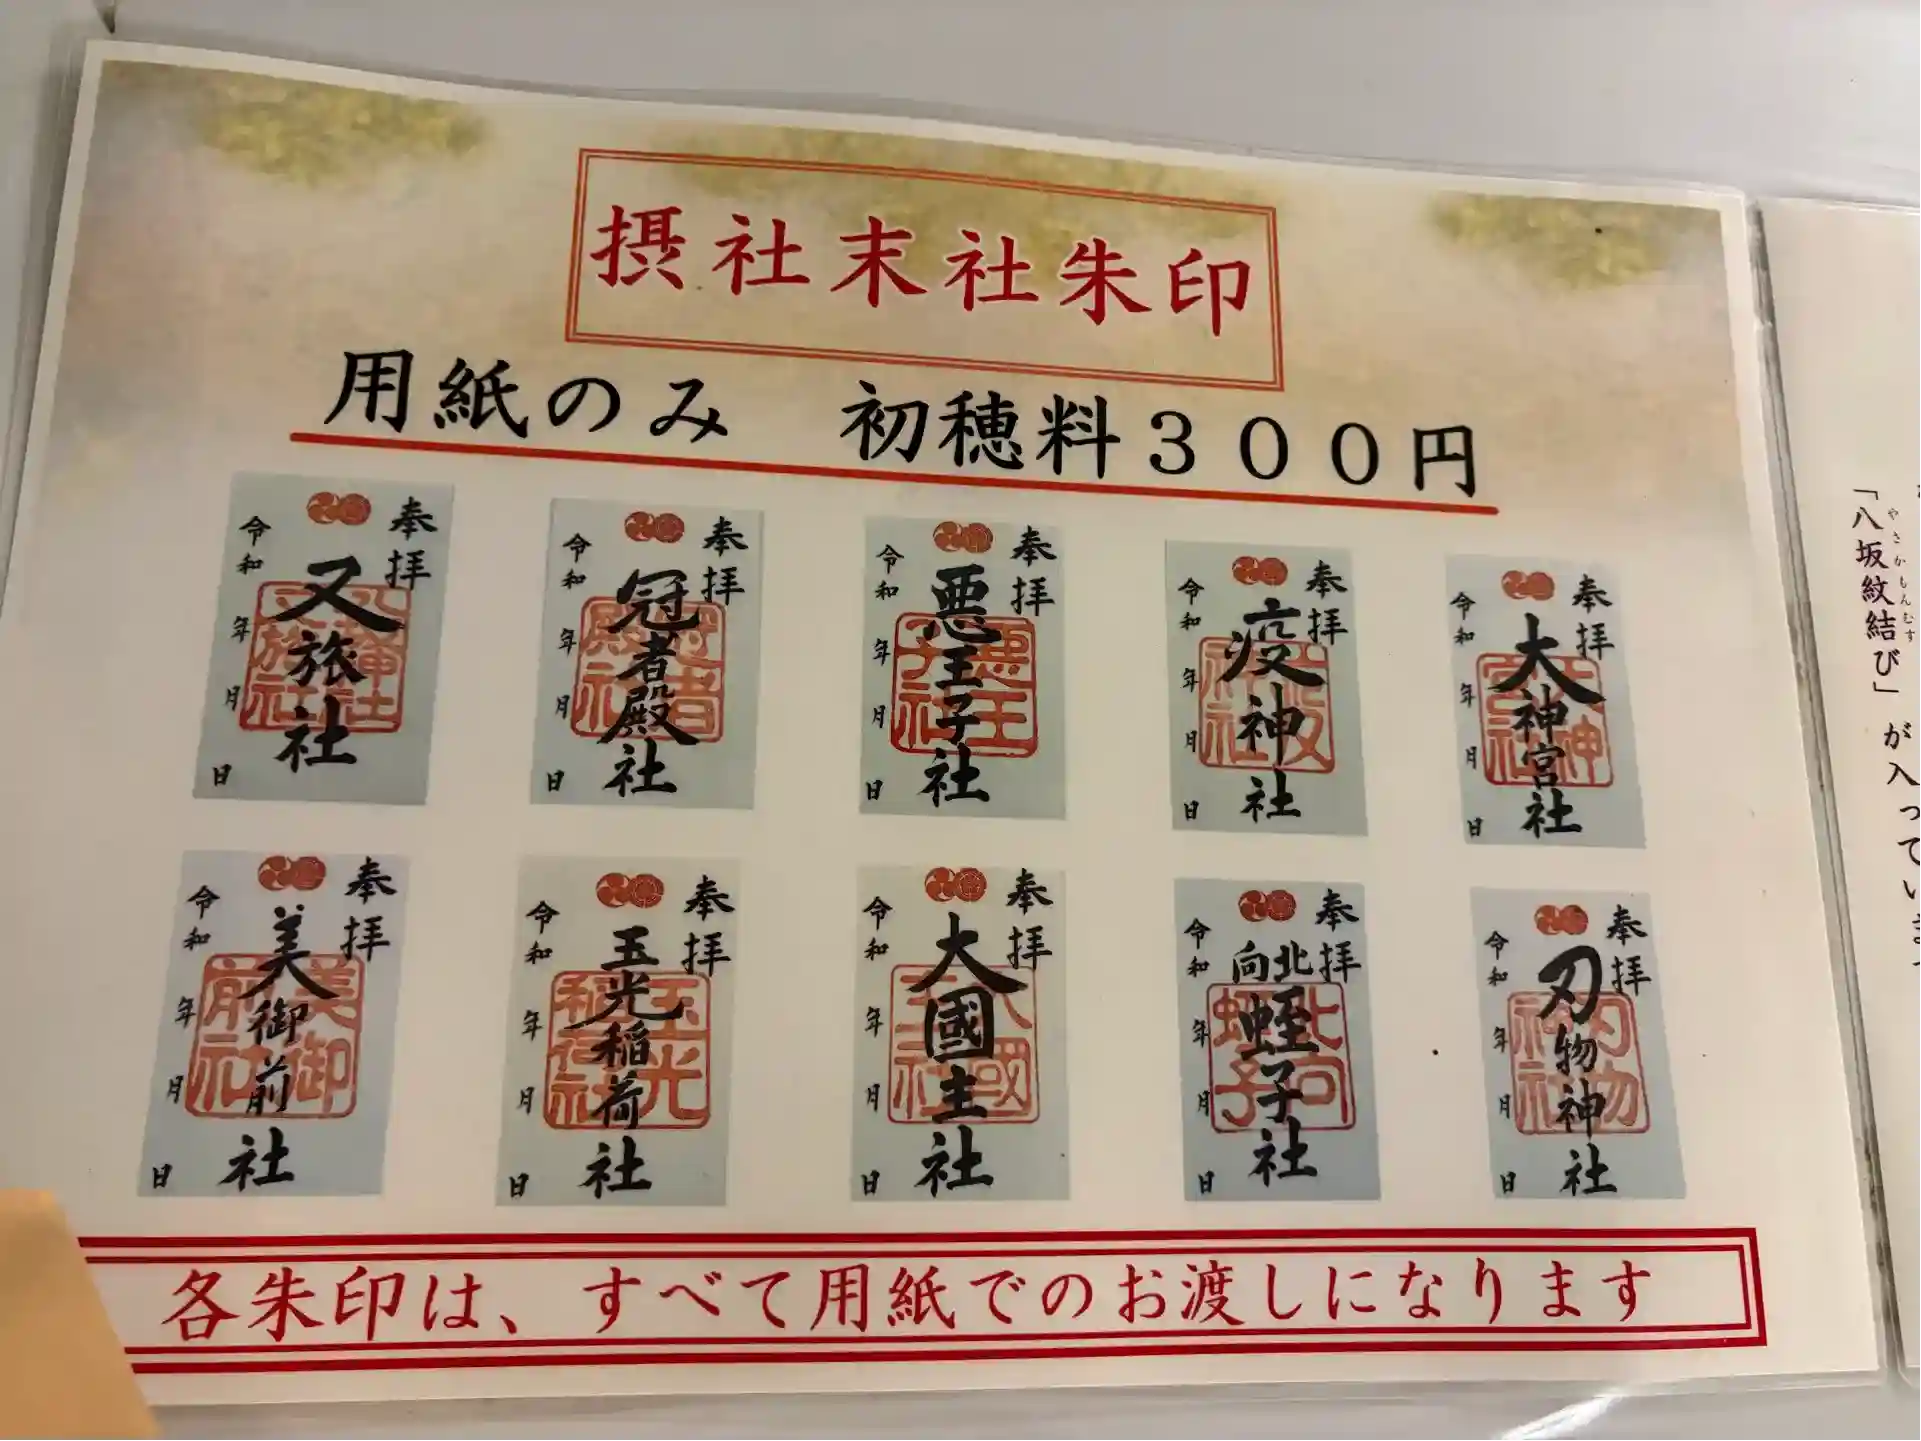 摂社末社朱印
用紙のみ　初穂料３００円
奉拝
又旅社
令和　年　月　日
奉拝
冠者殿社
令和　年　月　日
奉拝
悪王子社
令和　年　月　日
奉拝
疫神社
令和　年　月　日
奉拝
大神宮社
令和　年　月　日
奉拝
美御前社
令和　年　月　日
奉拝
玉光稲荷社
令和　年　月　日
奉拝
大國主社
令和　年　月　日
奉拝
北向蛭子社
令和　年　月　日
奉拝
刃物神社
令和　年　月　日
各朱印は、すべて用紙でのお渡しになります
「八坂紋結び」が入ってい
やさかもんむす